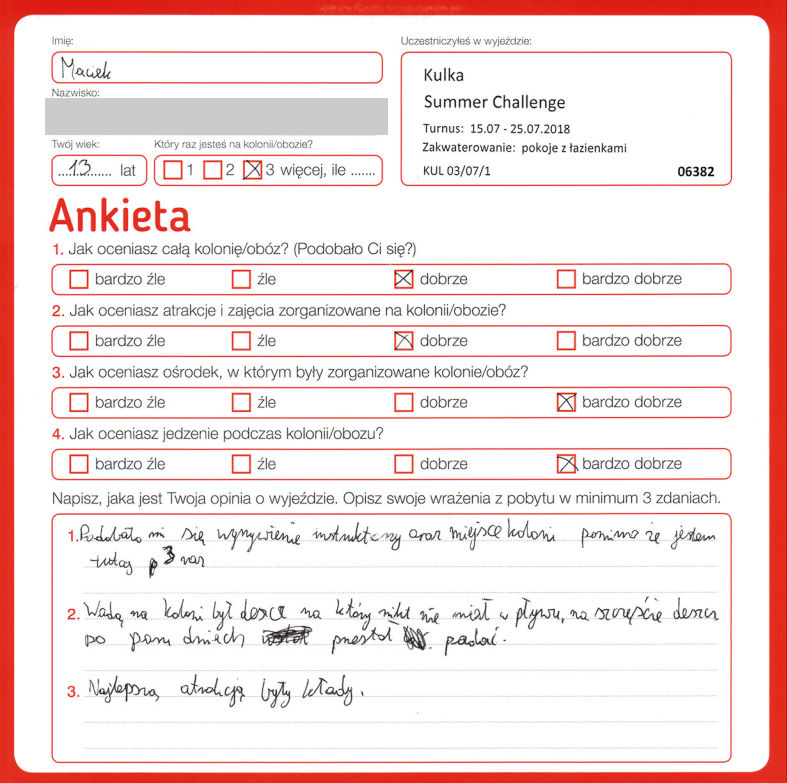 Imię:
Maciek
Nazwisko:
Twój wiek:
13 lat
Który raz jesteś na kolonii/obozie?
1 2 3 więcej, ile .......
Uczestniczyłeś w wyjeździe:
Kulka
Summer Challenge
Turnus: 15.07 - 25.07.2018
Zakwaterowanie: pokoje z łazienkami
KUL 03/07/1 06382
Ankieta
1. Jak oceniasz całą kolonię/obóz? (Podobało Ci się?)
bardzo źle źle dobrze bardzo dobrze
2. Jak oceniasz atrakcje i zajęcia zorganizowane na kolonii/obozie?
bardzo źle źle dobrze bardzo dobrze
3. Jak oceniasz ośrodek, w którym były zorganizowane kolonie/obóz?
bardzo źle źle dobrze bardzo dobrze
4. Jak oceniasz jedzenie podczas kolonii/obozu?
bardzo źle źle dobrze bardzo dobrze
Napisz, jaka jest Twoja opinia o wyjeździe. Opisz swoje wrażenia z pobytu w minimum 3 zdaniach.
1. Podobało mi się wyżywienie instruktorzy oraz miejsce koloni pomimo że jestem
tutaj 3 raz
2. Wadą na koloni był deszcz na który nikt nie miał wpływu, na szczęście deszcz
po paru dniech przestał padać.
3. Najlepszą atrakcją były